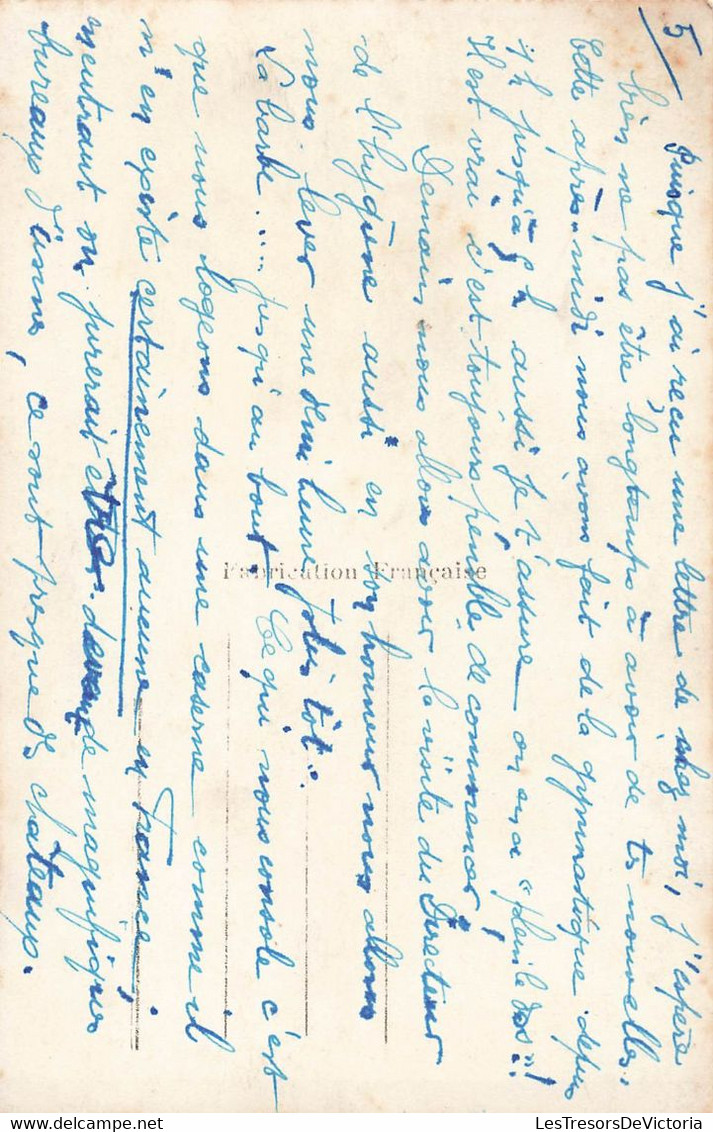 5/
Puisque j'ai reçu une lettre de chez moi, j'espère
bien ne pas être longtemps à avoir de tes nouvelles.
Cette après-midi nous avons fait de la gymnastique depuis
1h jusqu'à 5h aussi je t'assure on en a "plein le dos"!
Il est vrai c'est toujours pénible de commencer!
Demain nous allons avoir la visite du Directeur
de l'hygiène aussi en son honneur nous allons
nous lever une demi heure "plus tôt".
La barbe.... jusqu'au bout. Ce qui nous console c'est
que nous logeons dans une caserne comme il
n'en existe certainement aucune en France;
en entrant on jurerait être devant de magnifiques
bureaux d'usines, ce sont presque des châteaux.
Fabrication Française
LesTresorsDeVictoria